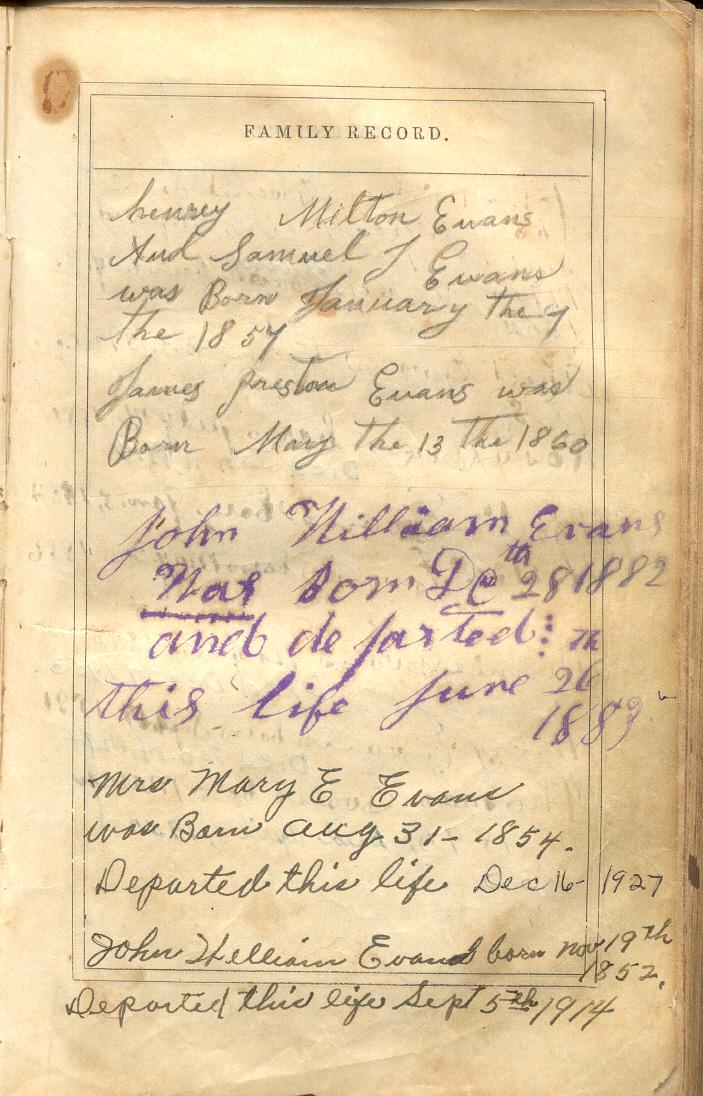 FAMILY RECORD.
henrey Milton Evans
And Samuel J Evans
was Born January the 7
the 1857
James preston Evans was
Born May the 13 the 1860
John William Evans
Was born De 28th 1882
and departed
this life June 26th
1883
Mrs Mary E Evans
was Born Aug 31- 1854.
Departed this life Dec 16- 1927
John William Evans born Nov 19th
1852.
Departed this life Sept 5th 1914